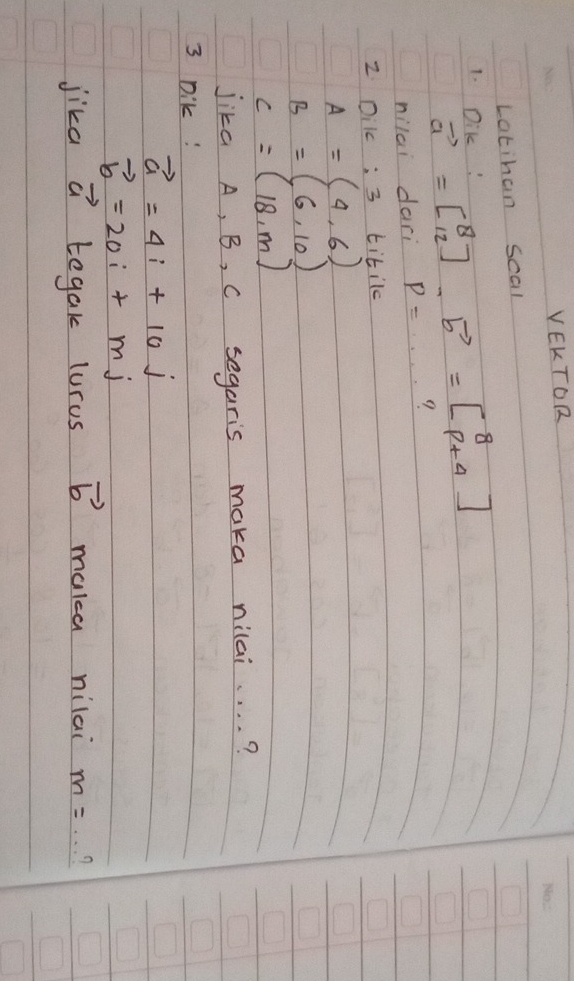 No:
VEKTOR
Latihan soal
1. Dik :
a→ = [8 12] , b→ = [8 p+4]
nilai dari p = ..... ?
2 Dik : 3 titik
A = (4,6)
B = (6,10)
C = (18,m)
jika A, B, C segaris maka nilai ....?
3 Dik :
a→ = 4i + 10j
b→ = 20i + mj
jika a→ tegak lurus b→ maka nilai m = ...?
No: